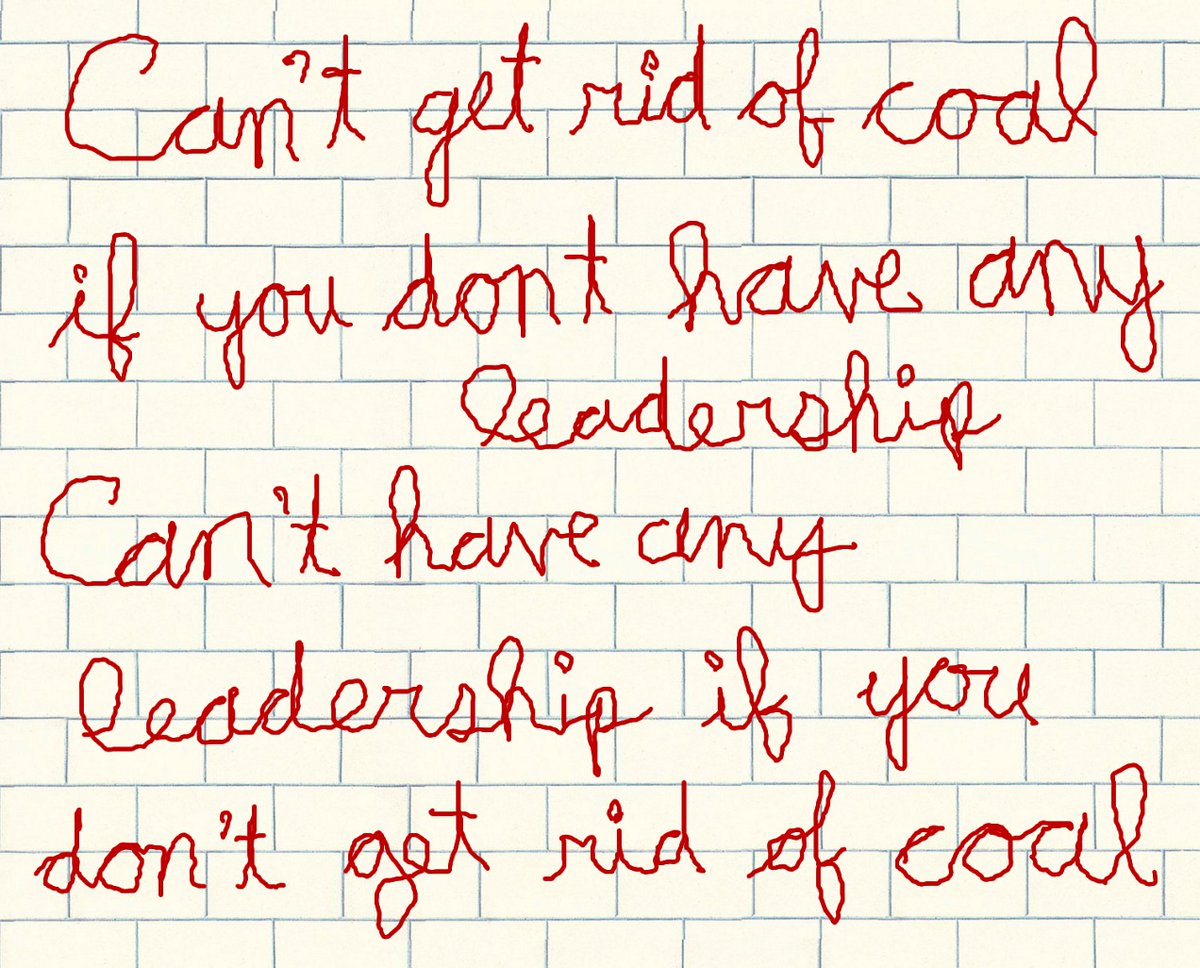 Can't get rid of coal
if you dont have any
leadership
Can't have any
leadership if you
don't get rid of coal